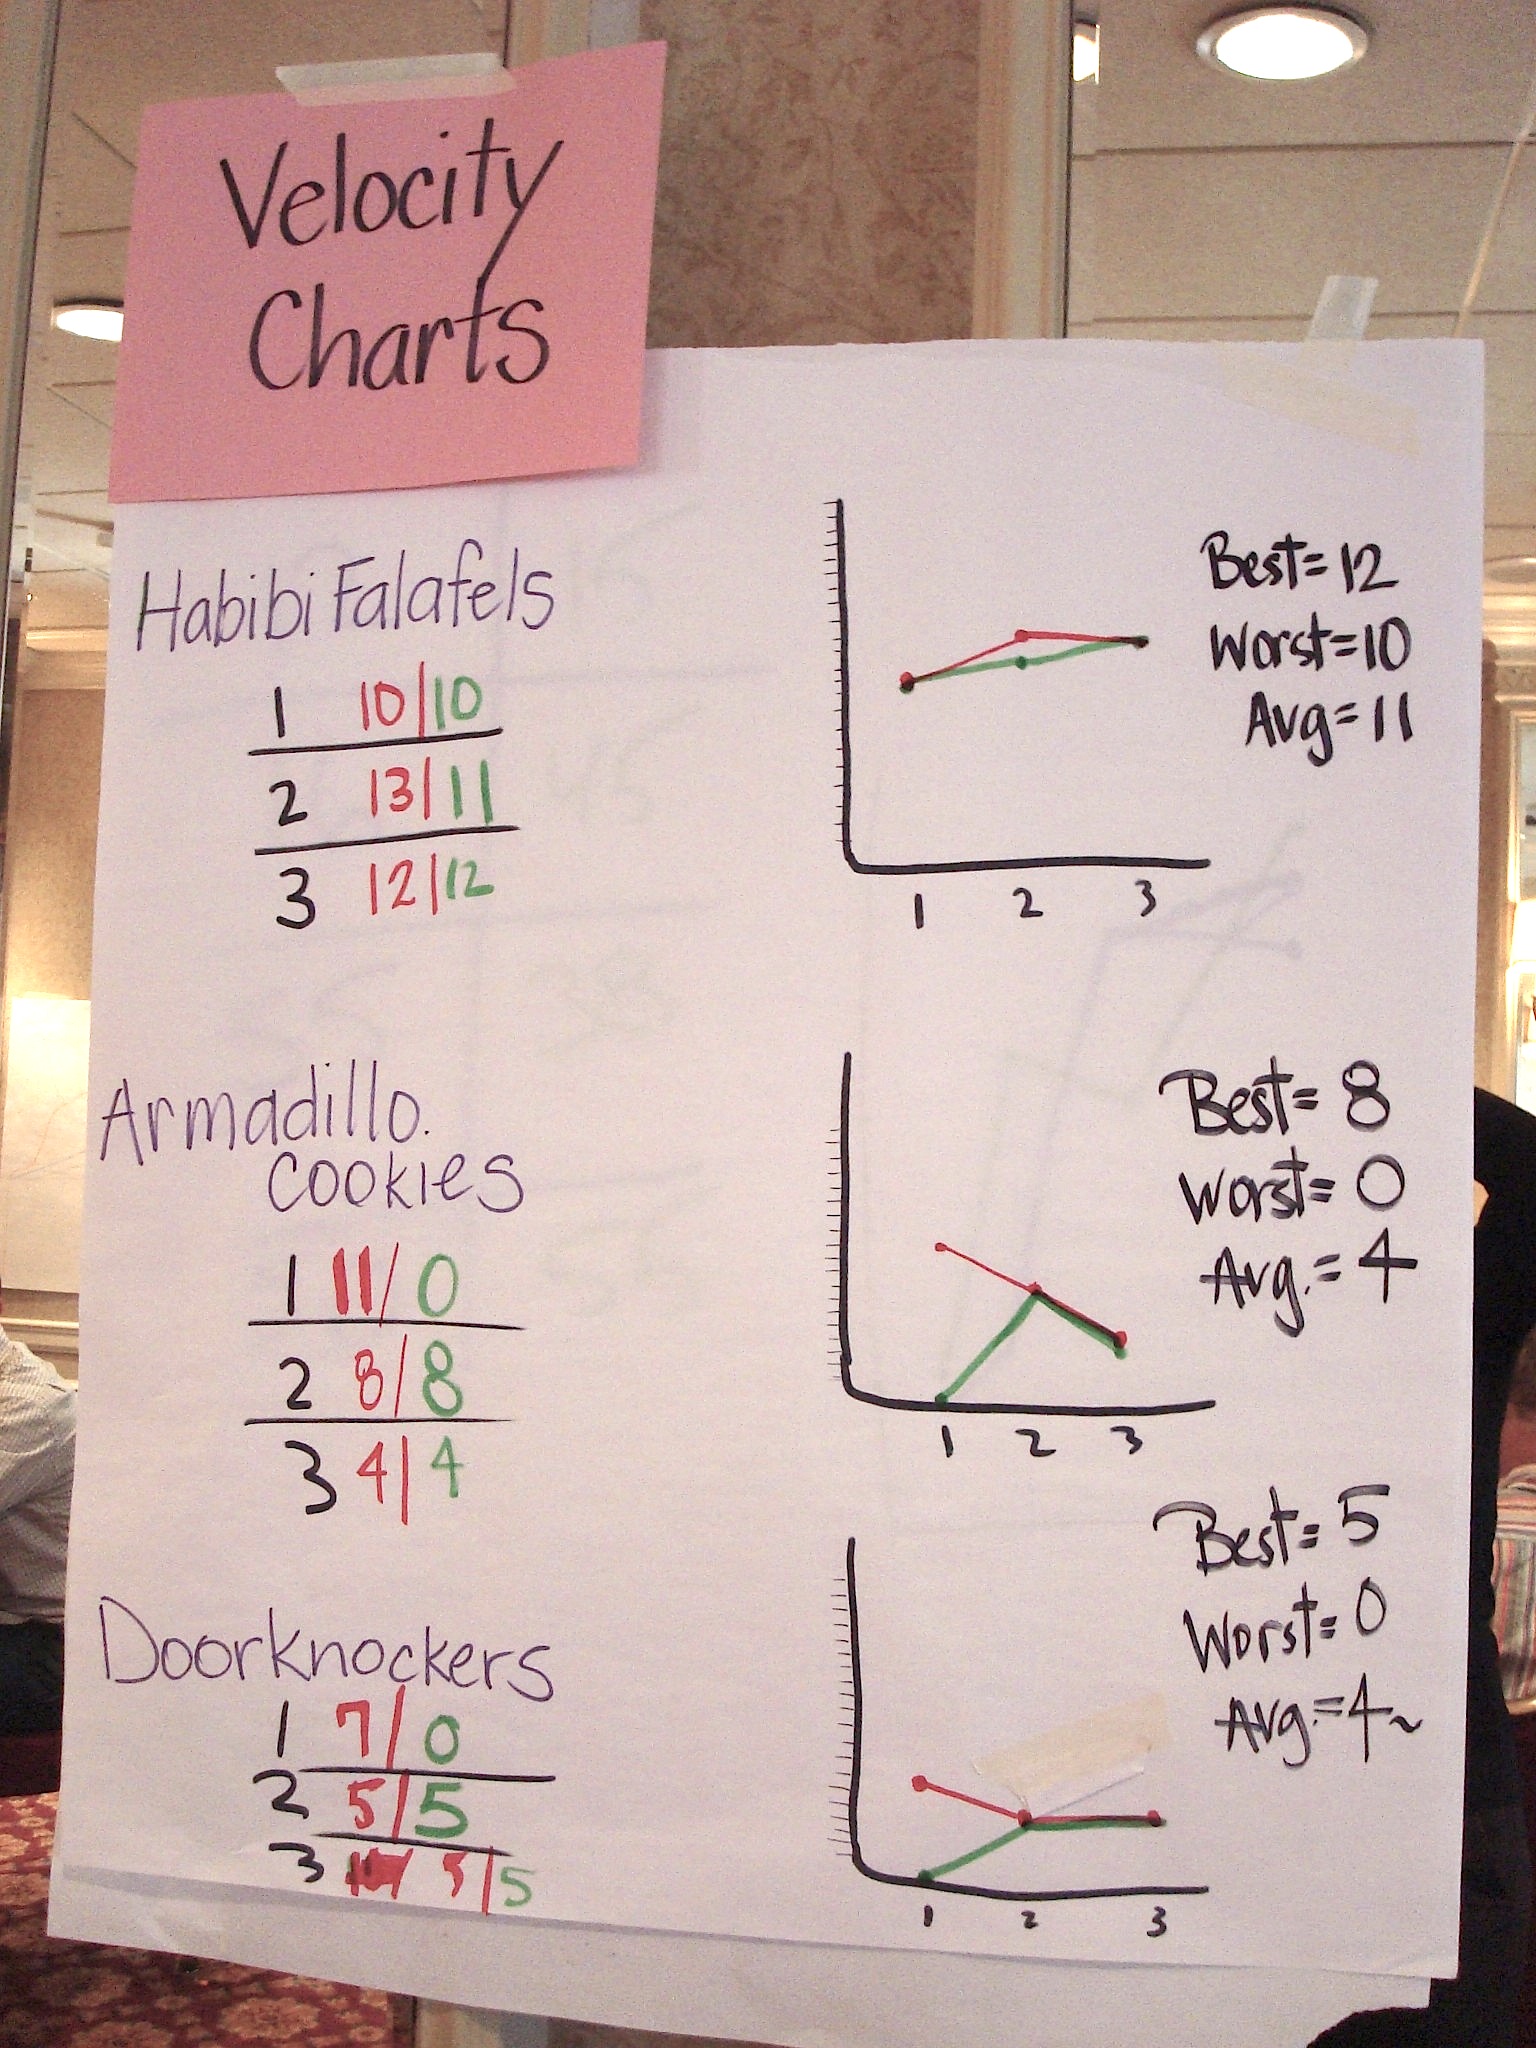 Velocity
Charts
Habibi Falafels
1 10/10
2 13/11
3 12/12
1 2 3
Best=12
Worst=10
Avg=11
Armadillo.
cookies
1 11/0
2 8/8
3 4/4
1 2 3
Best=8
Worst=0
Avg.=4
Doorknockers
1 7/0
2 5/5
3 5/5
1 2 3
Best=5
Worst=0
Avg.=4~